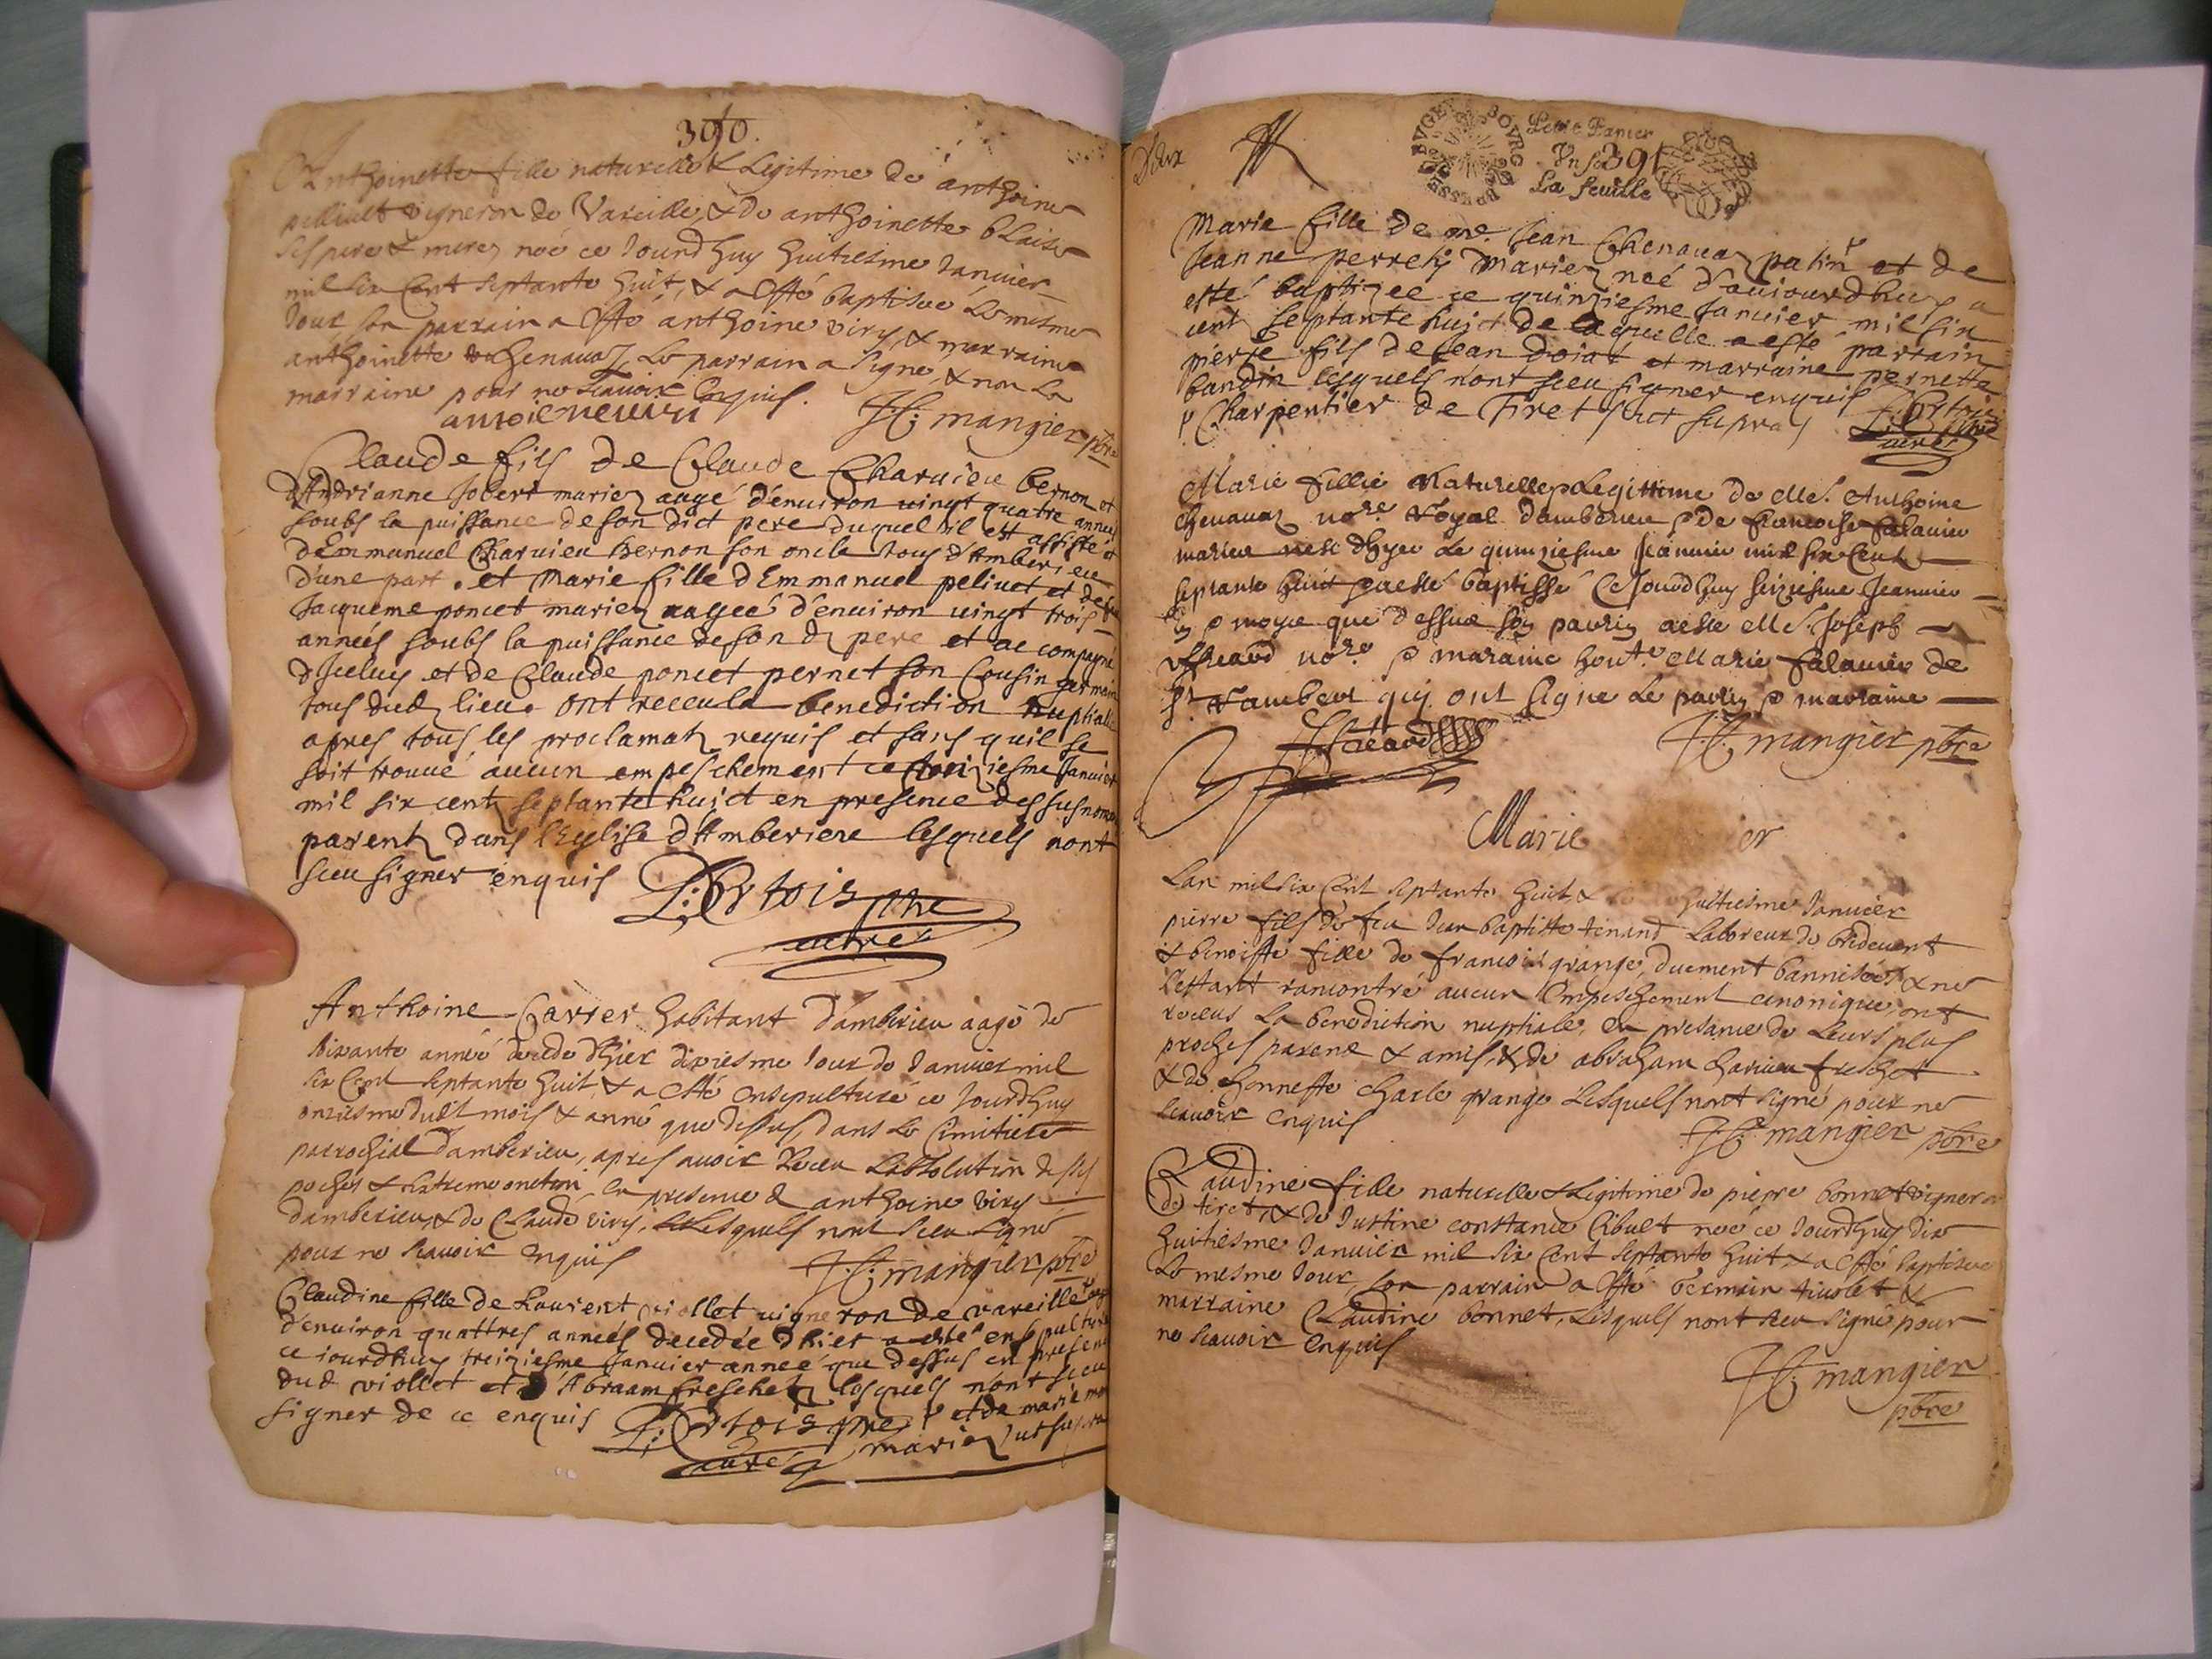 390.
Anthoinette fille naturelle & Legitime de anthoine
pelliuet vigneron de Vareille, & de anthoinette blaise
ses pere & mere, neé ce Jourdhuy huitiesme Januier
mil six Cent septante huit, & a esté baptiseé le mesme
Jour son parrain a esté anthoine viry, & marraine
anthoinette Chenauaz, Le parrain a signe, & non La
marraine pour ne scauoir enquis.
J.C. mangier pbre
Claude fils de Claude Charuieu bernon et
d'Andrianne Jobert mariez aagé d'enuiron uingt quatre annees
soubs la puissance de son dict pere duquel il est assisté et
d'Emmanuel Charuieu bernon son oncle tous d'Amberieu
d'une part. et Marie fille d'Emmanuel peliuet et de
Jaqueme poncet mariez aagée d'enuiron uingt trois
années soubs la puissance de son d. pere et accompagné
d'Iceluy et de Claude poncet pernet son Cousin germain
tous dud. lieu. ont receu la benediction nuptiale
apres tous les proclamatz requis et sans quil se
soit trouué aucun empeschement ce treiziesme Januier
mil six centz septante huict en presence des susnommes
parentz dans l'Eglise d'Amberieu lesquels nont
sceu signer enquis
Anthoine Carrer habitant d'amberieu aagé de
soixante anneé decedé d'hier dixiesme Jour de Januier mil
six Cent septante huit, & a esté ensepulturé ce Jourdhuy
onziesme dudt mois & anné que dessus, dans Le Cimitiere
parrochial d'amberieu, apres auoir Receu Labsolution de ses
peches & extremeonction en presence d anthoine viry
d'amberieu, & de Claude viry, Lesquels nont sceu signé
pour ne scauoir enquis
J.C. mangier pbre
Claudine fille de Laurent viollet uigneron de vareille
d'enuiron quattres années decedée d'hier a esté ensepulturé
ce iourdhuy treiziesme Januier année que dessus en presence
dud. viollet et d'Abraam freschet lesquels n'ont sceu
signer de ce enquis
mariez ut supra
Petit Papier
391
La feuille
Marie fille de me. Jean Chenauaz et de
Jeanne perret mariez neé d'auiourdhuy a
esté baptizeé ce quinziesme Januier mil six
cent septante huict de laquelle a esté parrain
pierre fils de Jean doiat et marraine pernette
baudin lesquels n'ont sceu signer enquis
Charpentier de Tiret ut supra
Marie fillie Naturelle & Legittime de Me. Anthoine
Chenauaz nore. Royal damberieu & de francoise falauier
mariez nee dhyer Le quinziesme Jeanuier mil six Cent
septante huit & a esté baptissé Ce Jourdhuy seiziesme Jeanuier
& moys que dessus son parrin a este Me. Joseph
nore. & maraine honte. Marie falauier de
St Rambert quy ont signe Le parrin & marraine
J.C. mangier pbre
Marie er
Lan mil six Cent septante huit & huitiesme Januier
pierre fils de feu Jean baptiste tenand Laboreur de bredeuent
& benoiste fille de francois grange, duement bannisées, & ne
s'estant rancontré aucun empeschement canonique, ont
receus La benediction nuptiale, en presance de Leurs plus
proches parens & amis, & de abraham charuieu freschet
& de honneste Charle grange Lesquels n'ont signé pour ne
scauoir enquis
J.C. mangier pbre
Claudine fille naturelle & Legitime de pierre bonnet vigneron
de tiret, & de Justine constance Cibult neé ce Jourdhuy dix
huitiesme Januier mil six Cent septante huit, & a esté baptiseé
Le mesme Jour son parrain a esté Germain tiuolet &
marraine Claudine bonnet, Lesquels nont sceu signé pour
ne scauoir enquis
J.C. mangier
pbre